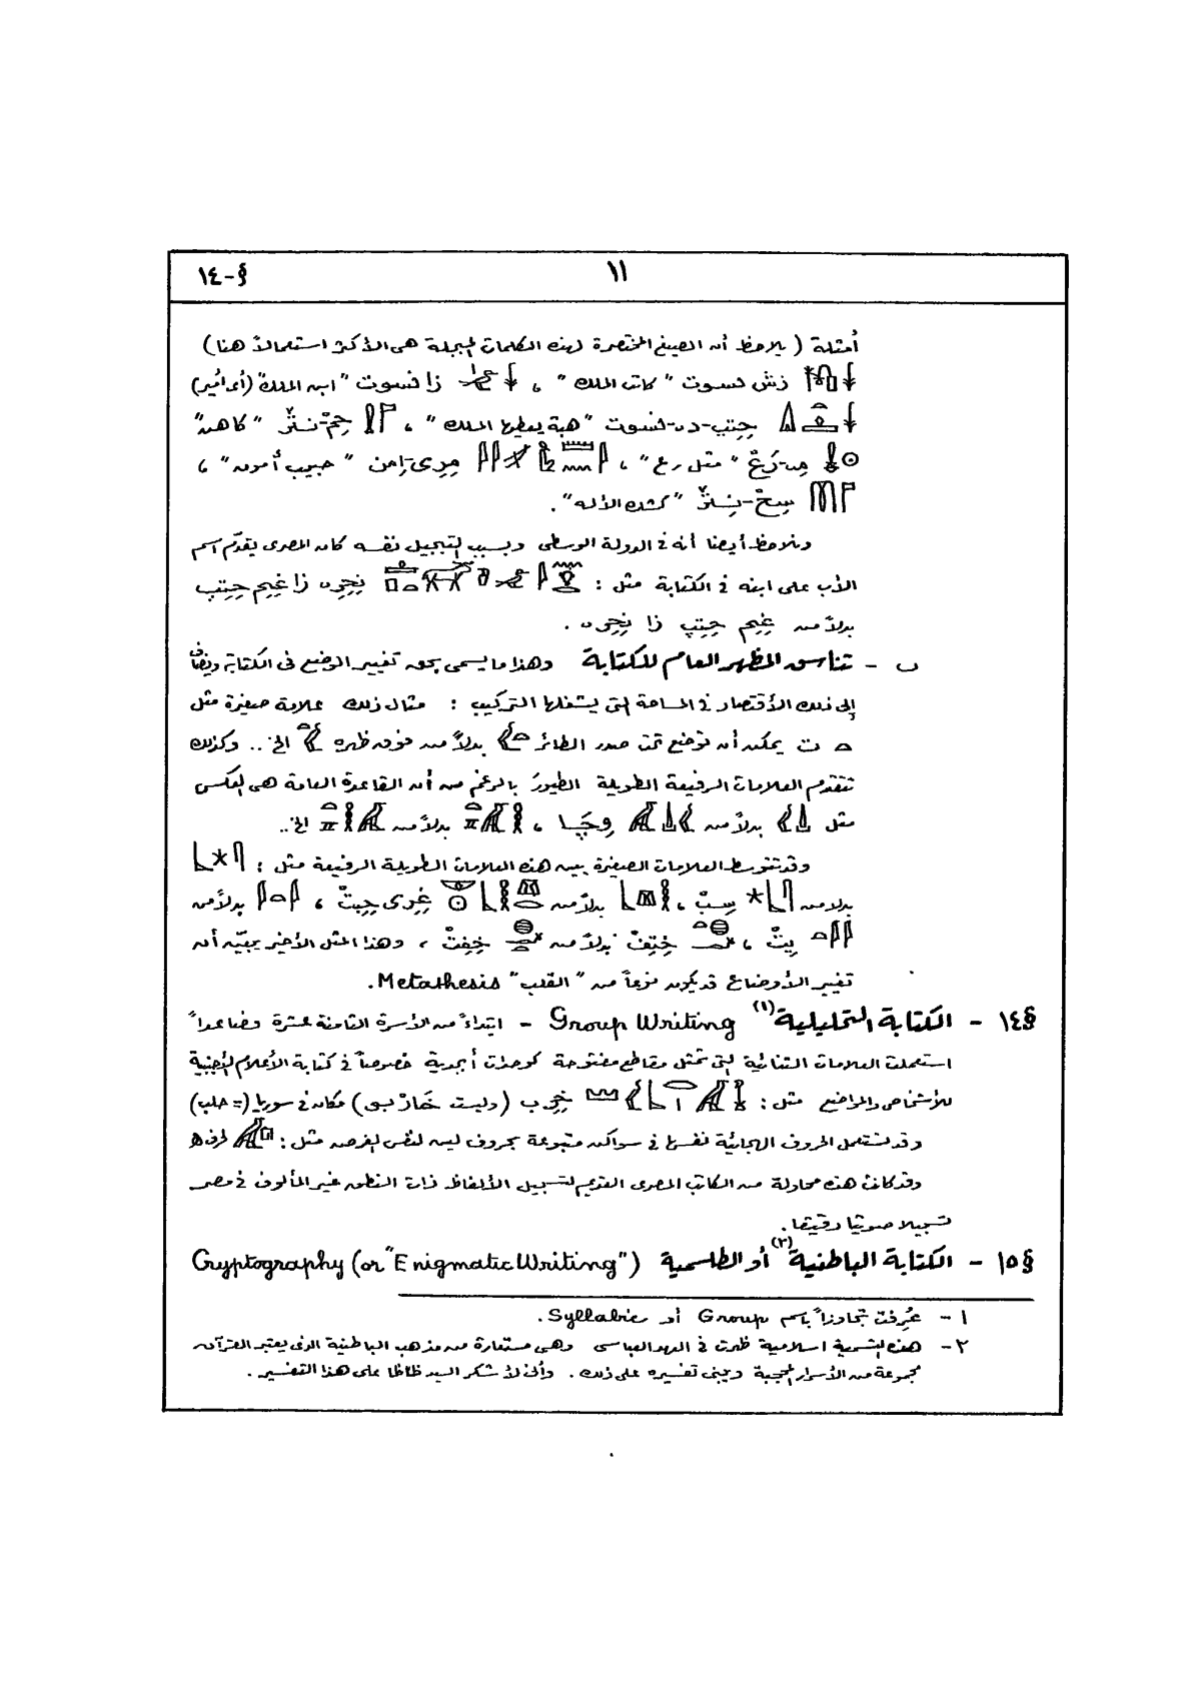 §-١٤
١١
أمثلة ( يلاحظ أن الصيغ المختصرة لهذه الكلمات المبجلة هى الأكثر استعمالاً هنا )
زش نسوت " كاتب الملك " ، زا نسوت " ابن الملك " (أى أمير)
حِتپ-دى-نسوت " هبة يعطيها الملك " ، حِمْ-نتر " كاهن "
مى-رَعْ " مثل رع " ، مرى-إمن " حبيب أمون " ،
نتر " الأله " .
ونلاحظ أيضا أنه فى الدولة الوسطى وبسبب التبجيل نفسه كان المصرى يقدّم اسم
الأب على ابنه فى الكتابة مثل : زا حِتپ
بدلاً من حِتپ زا .
ب - تناسق المظهر العام للكتابة وهذا ما يسمى بحق تغيير الوضع فى الكتابة ويضاف
إلى ذلك الأقتصاد فى المساحة التى يشغلها التركيب : مثال ذلك علامة صغيرة مثل
ت يمكن أن توضع تحت صدر الطائر بدلاً من فوق ظهره الخ .. وكذلك
تتقدم العلامات الرفيعة الطويلة الطيورَ بالرغم من أن القاعدة العامة هى العكس
مثل بدلاً من ، بدلاً من الخ ..
وقد تتوسط العلامات الصغيرة بين هذه العلامات الطويلة الرفيعة مثل :
بدلا من سبْ ، بدلاً من ، بدلاً من
يتْ ، ختفْ بدلاً من خفتْ ، وهذا المثل الأخير يبيّن أن
تغيير الأوضاع قد يكون نوعاً من " القلب " Metathesis .
§١٤ - الكتابة التحليلية (١) Group Writing - ابتداءً من الأسرة الثامنة عشرة فصاعداً
استعملت العلامات الثنائية التى تمثل مقاطع مفتوحة كوحدات أبجدية خصوصاً فى كتابة الأعلام الأجنبية
للأشخاص والمواضع مثل : (وليست ) مكان فى سوريا (= حلب)
وقد تستعمل الحروف الهجائية نفسها فى سواكن متبوعة بحروف لين لنفس الغرض مثل :
وقد كانت هذه محاولة من الكاتب المصرى القديم لتسجيل الألفاظ ذات النطق غير المألوف فى مصر
تسجيلا صوتيا دقيقا .
§١٥ - الكتابة الباطنية (٢) أو الطلسمية Cryptography (or "Enigmatic Writing")
١ - عُرفت تجاوزاً باسم Group أو Syllabic .
٢ - هذه التسمية اسلامية ظهرت فى العهد العباسى وهى مستعارة من مذهب الباطنية الذى يعتبر القرآن
مجموعة من الأسرار المحجبة ويبنى تفسيره على ذلك . وأنى لأشكر السيد ظاظا على هذا التفسير .